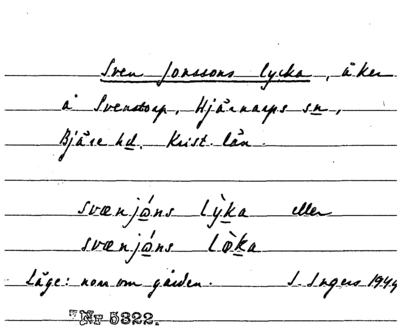 Sven Jonssons lycka, åker
å Svenstorp, Hjärnarps sn,
Bjäre hd. Krist. län.
svænjo̱ns lỳ̱ḵa eller
svænjo̱ns lø̱̀ḵa
Läge: norr om gården. S. Ingers 1944
Nr 5322.